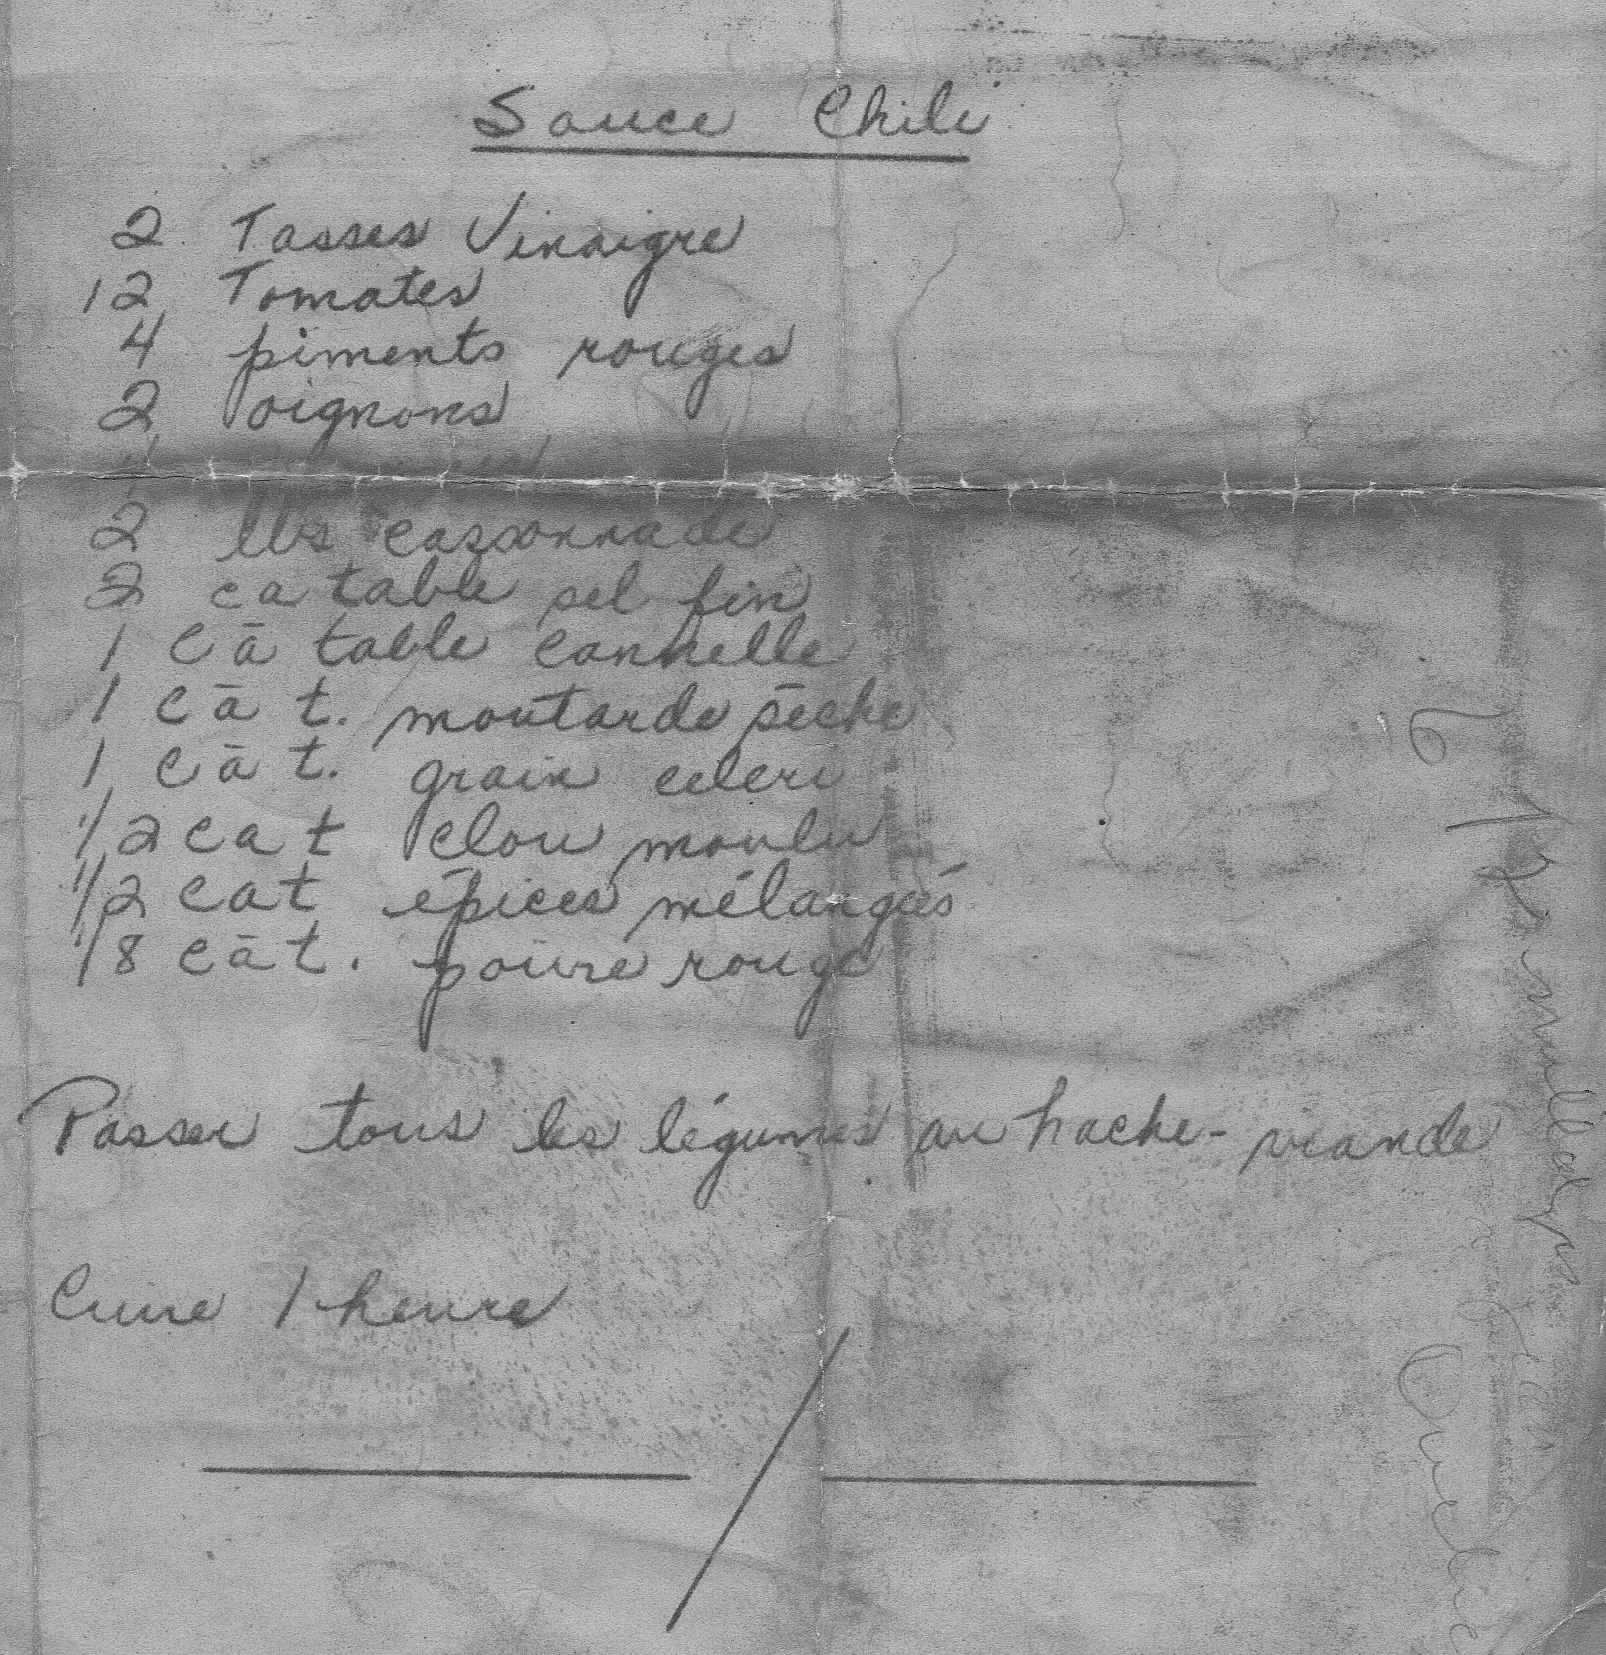 Sauce Chili
2 Tasses Vinaigre
12 Tomates
4 piments rouges
2 oignons
2 lbs cassonnade
2 ca table sel fin
1 Cā table cannelle
1 cā t. moutarde sēche
1 cā t. grain celeri
1/2 cat clou moulu
1/2 cat épices mélangés
1/8 cā t. poivre rouge
Passer tous les légumes au hache-viande
Cuire 1 heure